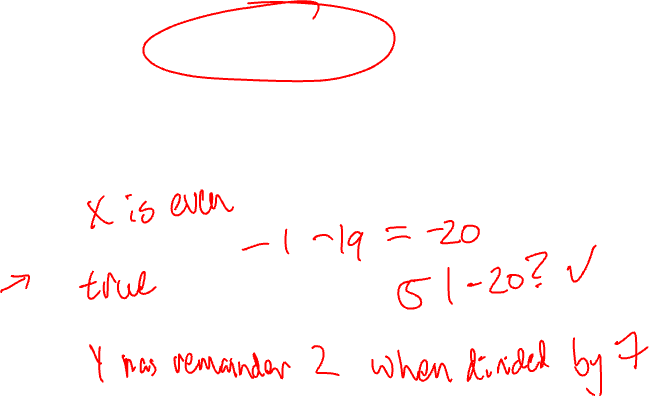 X is even
-1 -19 = -20
→ true
5 | -20? ✓
Y has remainder 2 when divided by 7